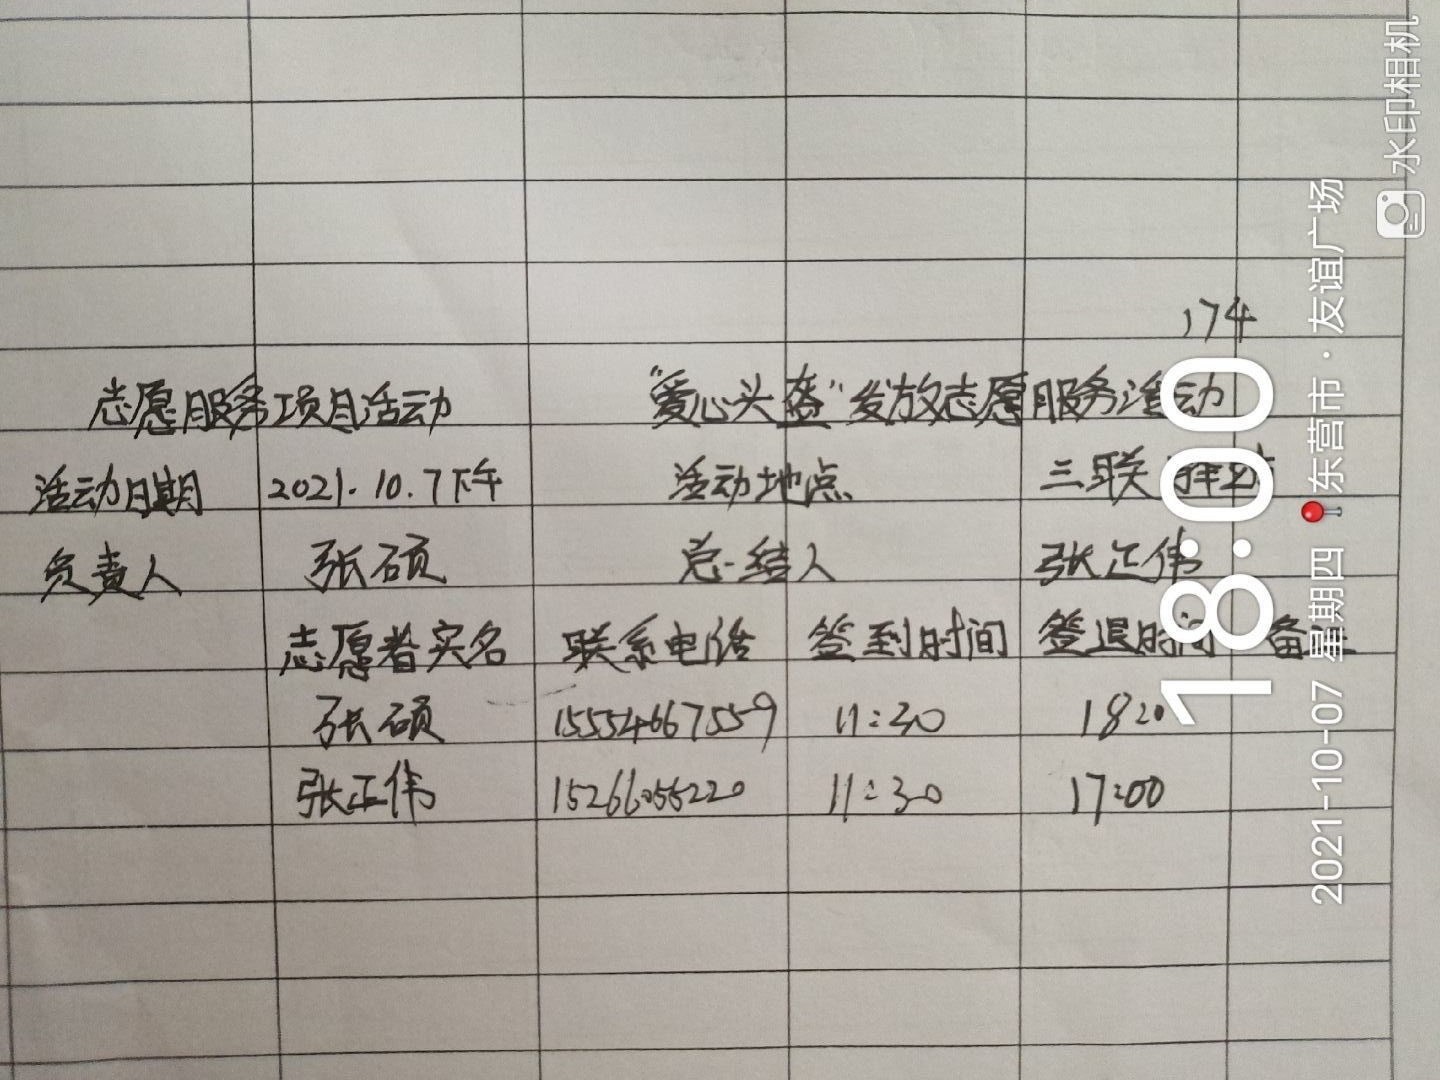 174
志愿服务项目活动 "爱心头盔"发放志愿服务活动
活动日期 2021.10.7下午 活动地点 三联
负责人 张硕 总结人 张正伟
志愿者实名 联系电话 签到时间 签退时间 备注
张硕 15554667559 11:30 1820
张正伟 15266055220 11:30 17:00
18:00
2021-10-07 星期四 东营市·友谊广场
水印相机